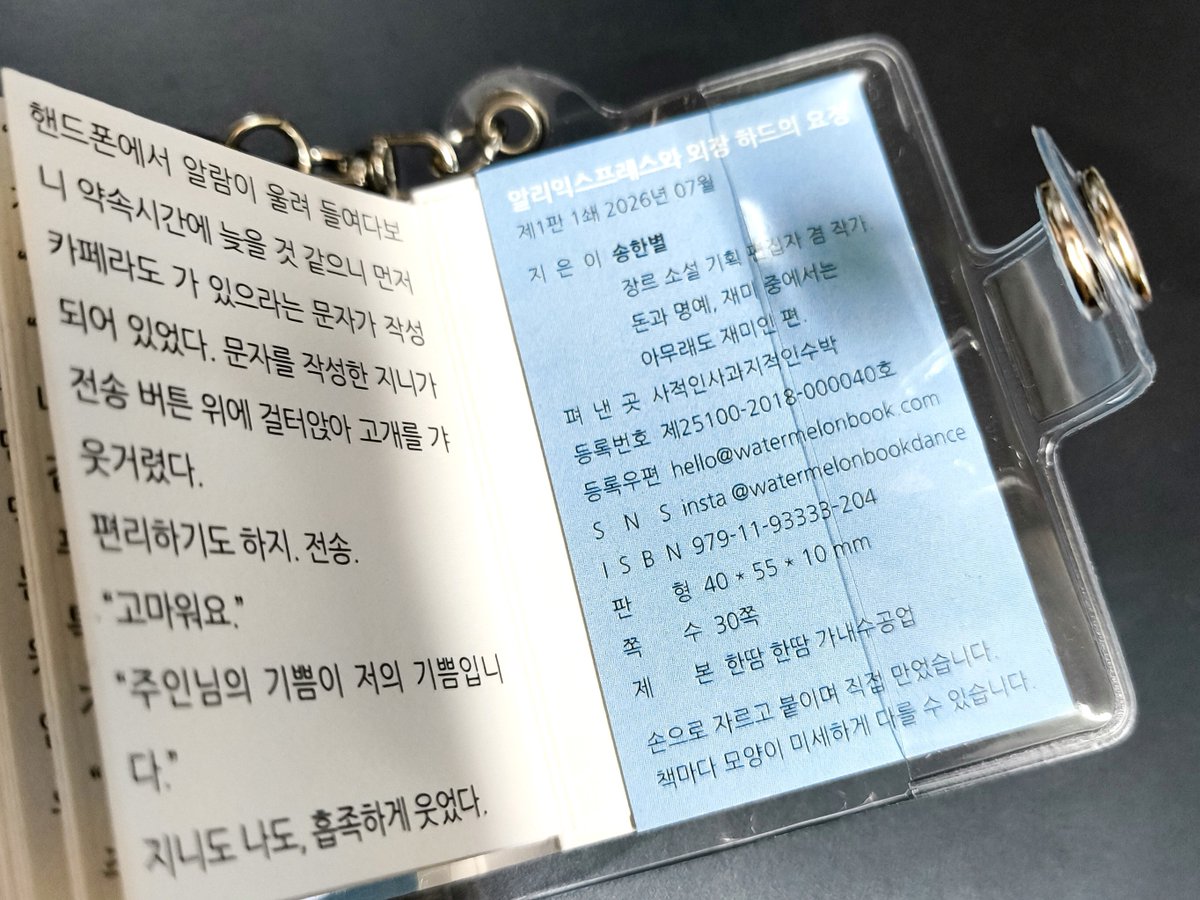 핸드폰에서 알람이 울려 들여다보
니 약속시간에 늦을 것 같으니 먼저
카페라도 가 있으라는 문자가 작성
되어 있었다. 문자를 작성한 지니가
전송 버튼 위에 걸터앉아 고개를 갸
웃거렸다.
편리하기도 하지. 전송.
"고마워요."
"주인님의 기쁨이 저의 기쁨입니
다."
지니도 나도, 흡족하게 웃었다.
알리익스프레스와 외장 하드의 요정
제1판 1쇄 2026년 07월
지 은 이 송한별
장르 소설 기획 편집자 겸 작가.
돈과 명예, 재미 중에서는
아무래도 재미인 편.
펴 낸 곳 사적인사과지적인수박
등록번호 제25100-2018-000040호
등록우편 hello@watermelonbook.com
S N S insta @watermelonbookdance
I S B N 979-11-93333-204
판 형 40 * 55 * 10 mm
쪽 수 30쪽
제 본 한땀 한땀 가내수공업
손으로 자르고 붙이며 직접 만었습니다.
책마다 모양이 미세하게 다를 수 있습니다.